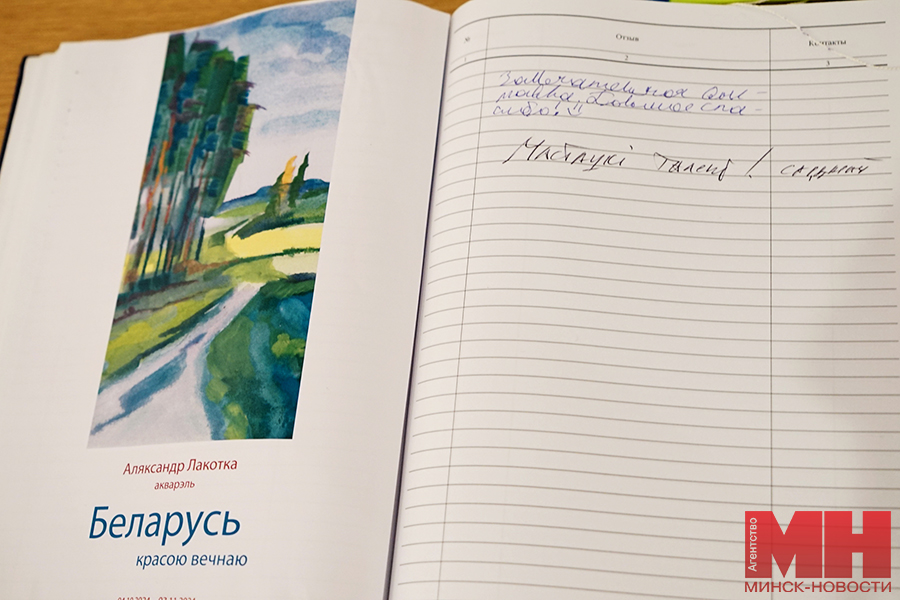 Аляксандр Лакотка
акварэль
Беларусь
красою вечнаю
№ Отзыв Контакты
1 2 3
Замечательная вы-
ставка, Большое спа-
сибо!
Мастацкі талент!
Агентство
МН
МИНСК-НОВОСТИ